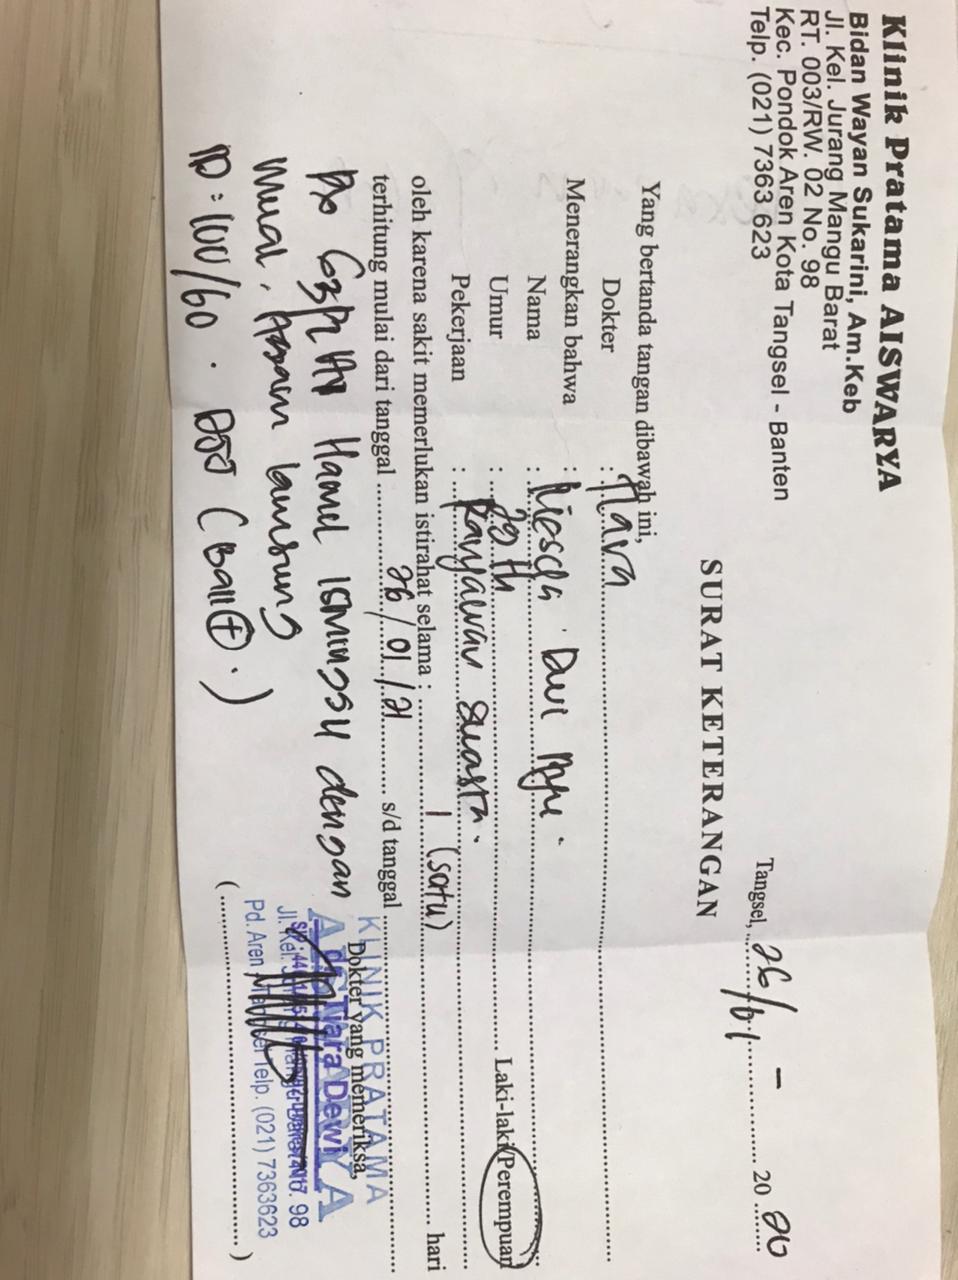 Klinik Pratama AISWARYA
Bidan Wayan Sukarini, Am.Keb
Jl. Kel. Jurang Mangu Barat
RT. 003/RW. 02 No. 98
Kec. Pondok Aren Kota Tangsel - Banten
Telp. (021) 7363 623
Tangsel, 26/01 - 20 20
SURAT KETERANGAN
Yang bertanda tangan dibawah ini,
Dokter : Tiara
Menerangkan bahwa :
Nama : Dwi
Umur : th Laki-laki/Perempuan
Pekerjaan : Karyawan swasta.
oleh karena sakit memerlukan istirahat selama : 1 (satu) hari
terhitung mulai dari tanggal 26/01/21 s/d tanggal
Hamil 15 minggu dengan
mual, Asam lambung
TD : 100/60 . DJJ ( Ball + . )
KLINIK PRATAMA
Dokter yang memeriksa,
AISWARYA
dr. Tiara Dewi
Jl. Kel. 98
Pd. Aren Telp. (021) 7363623
( )